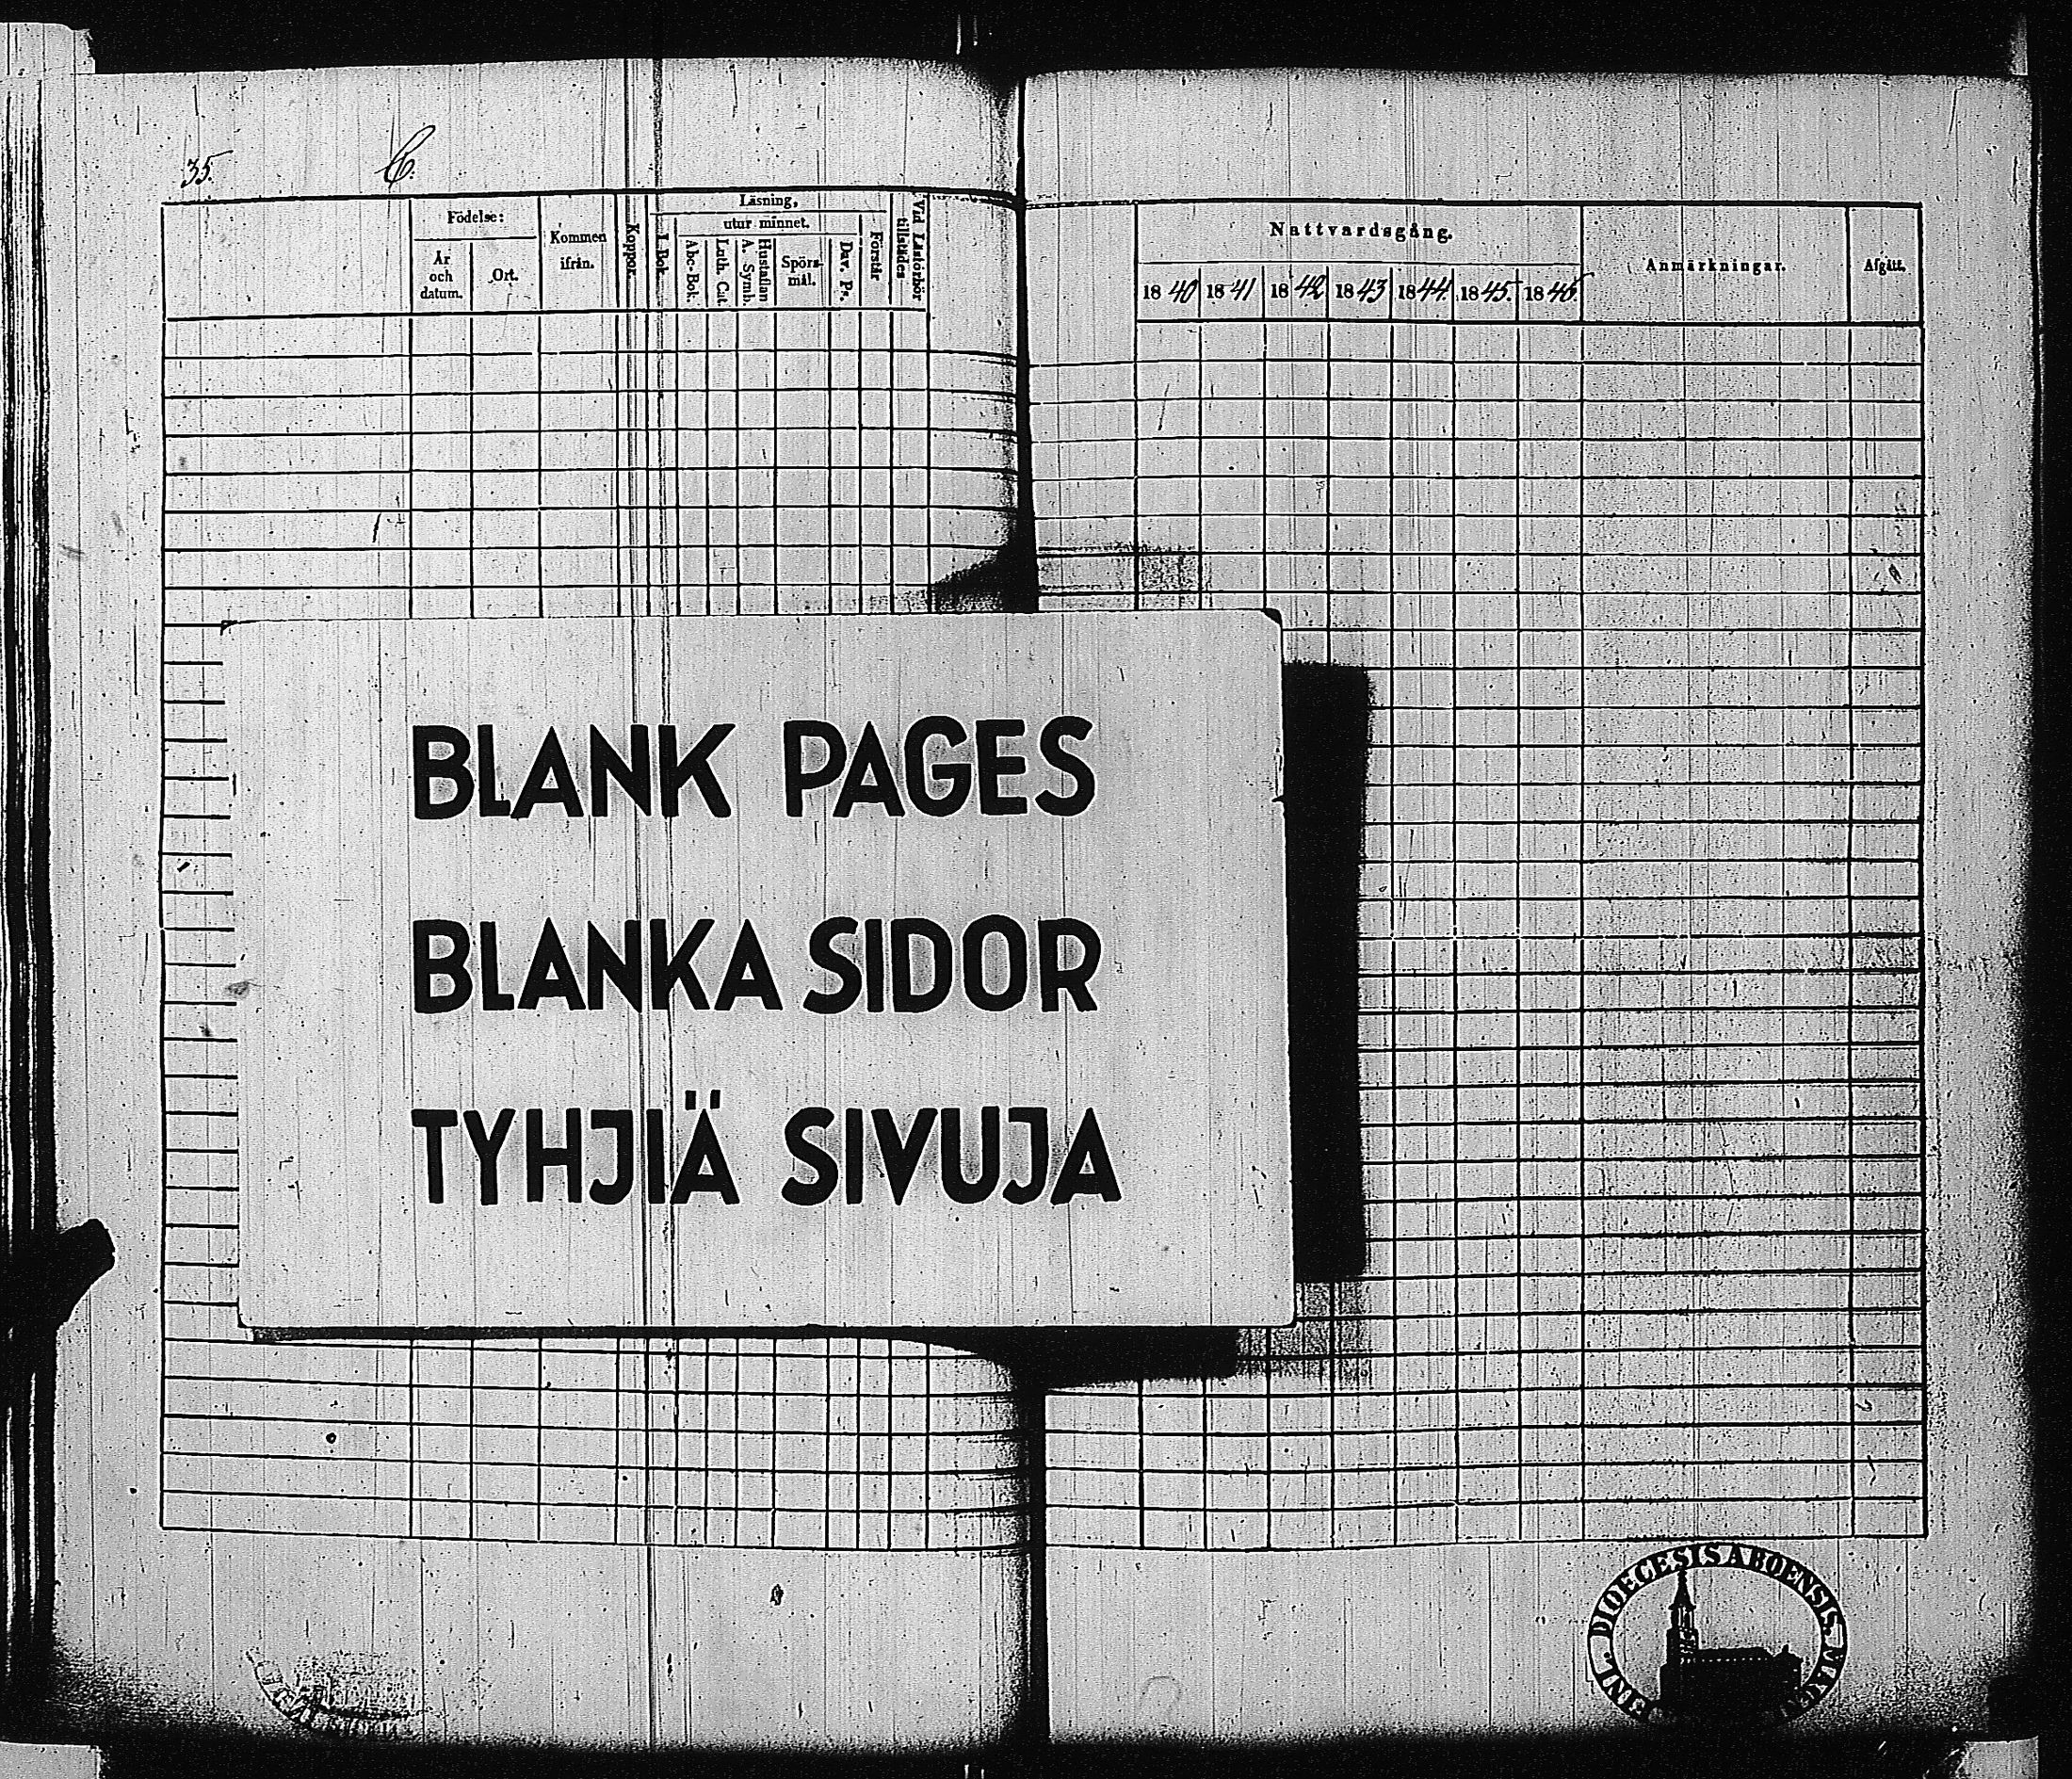 35.
Födelse:
År
och
datum.
Ort.
Kommen
ifrån.
Koppor.
Läsning,
utur minnet.
I. Bok.
Abc-Bok.
Luth. Cat.
Hustaflan
A. Symb.
Spörs-
mål.
Dav. Ps.
Förstår
Vid Läsförhör
tillstädes
Nattvardsgång.
1840 1841 1842 1843 1844. 1845. 1846.
Anmärkningar.
Afgått.
BLANK PAGES
BLANKA SIDOR
TYHJIÄ SIVUJA
DIOECESIS ABOENSIS.
FINL.